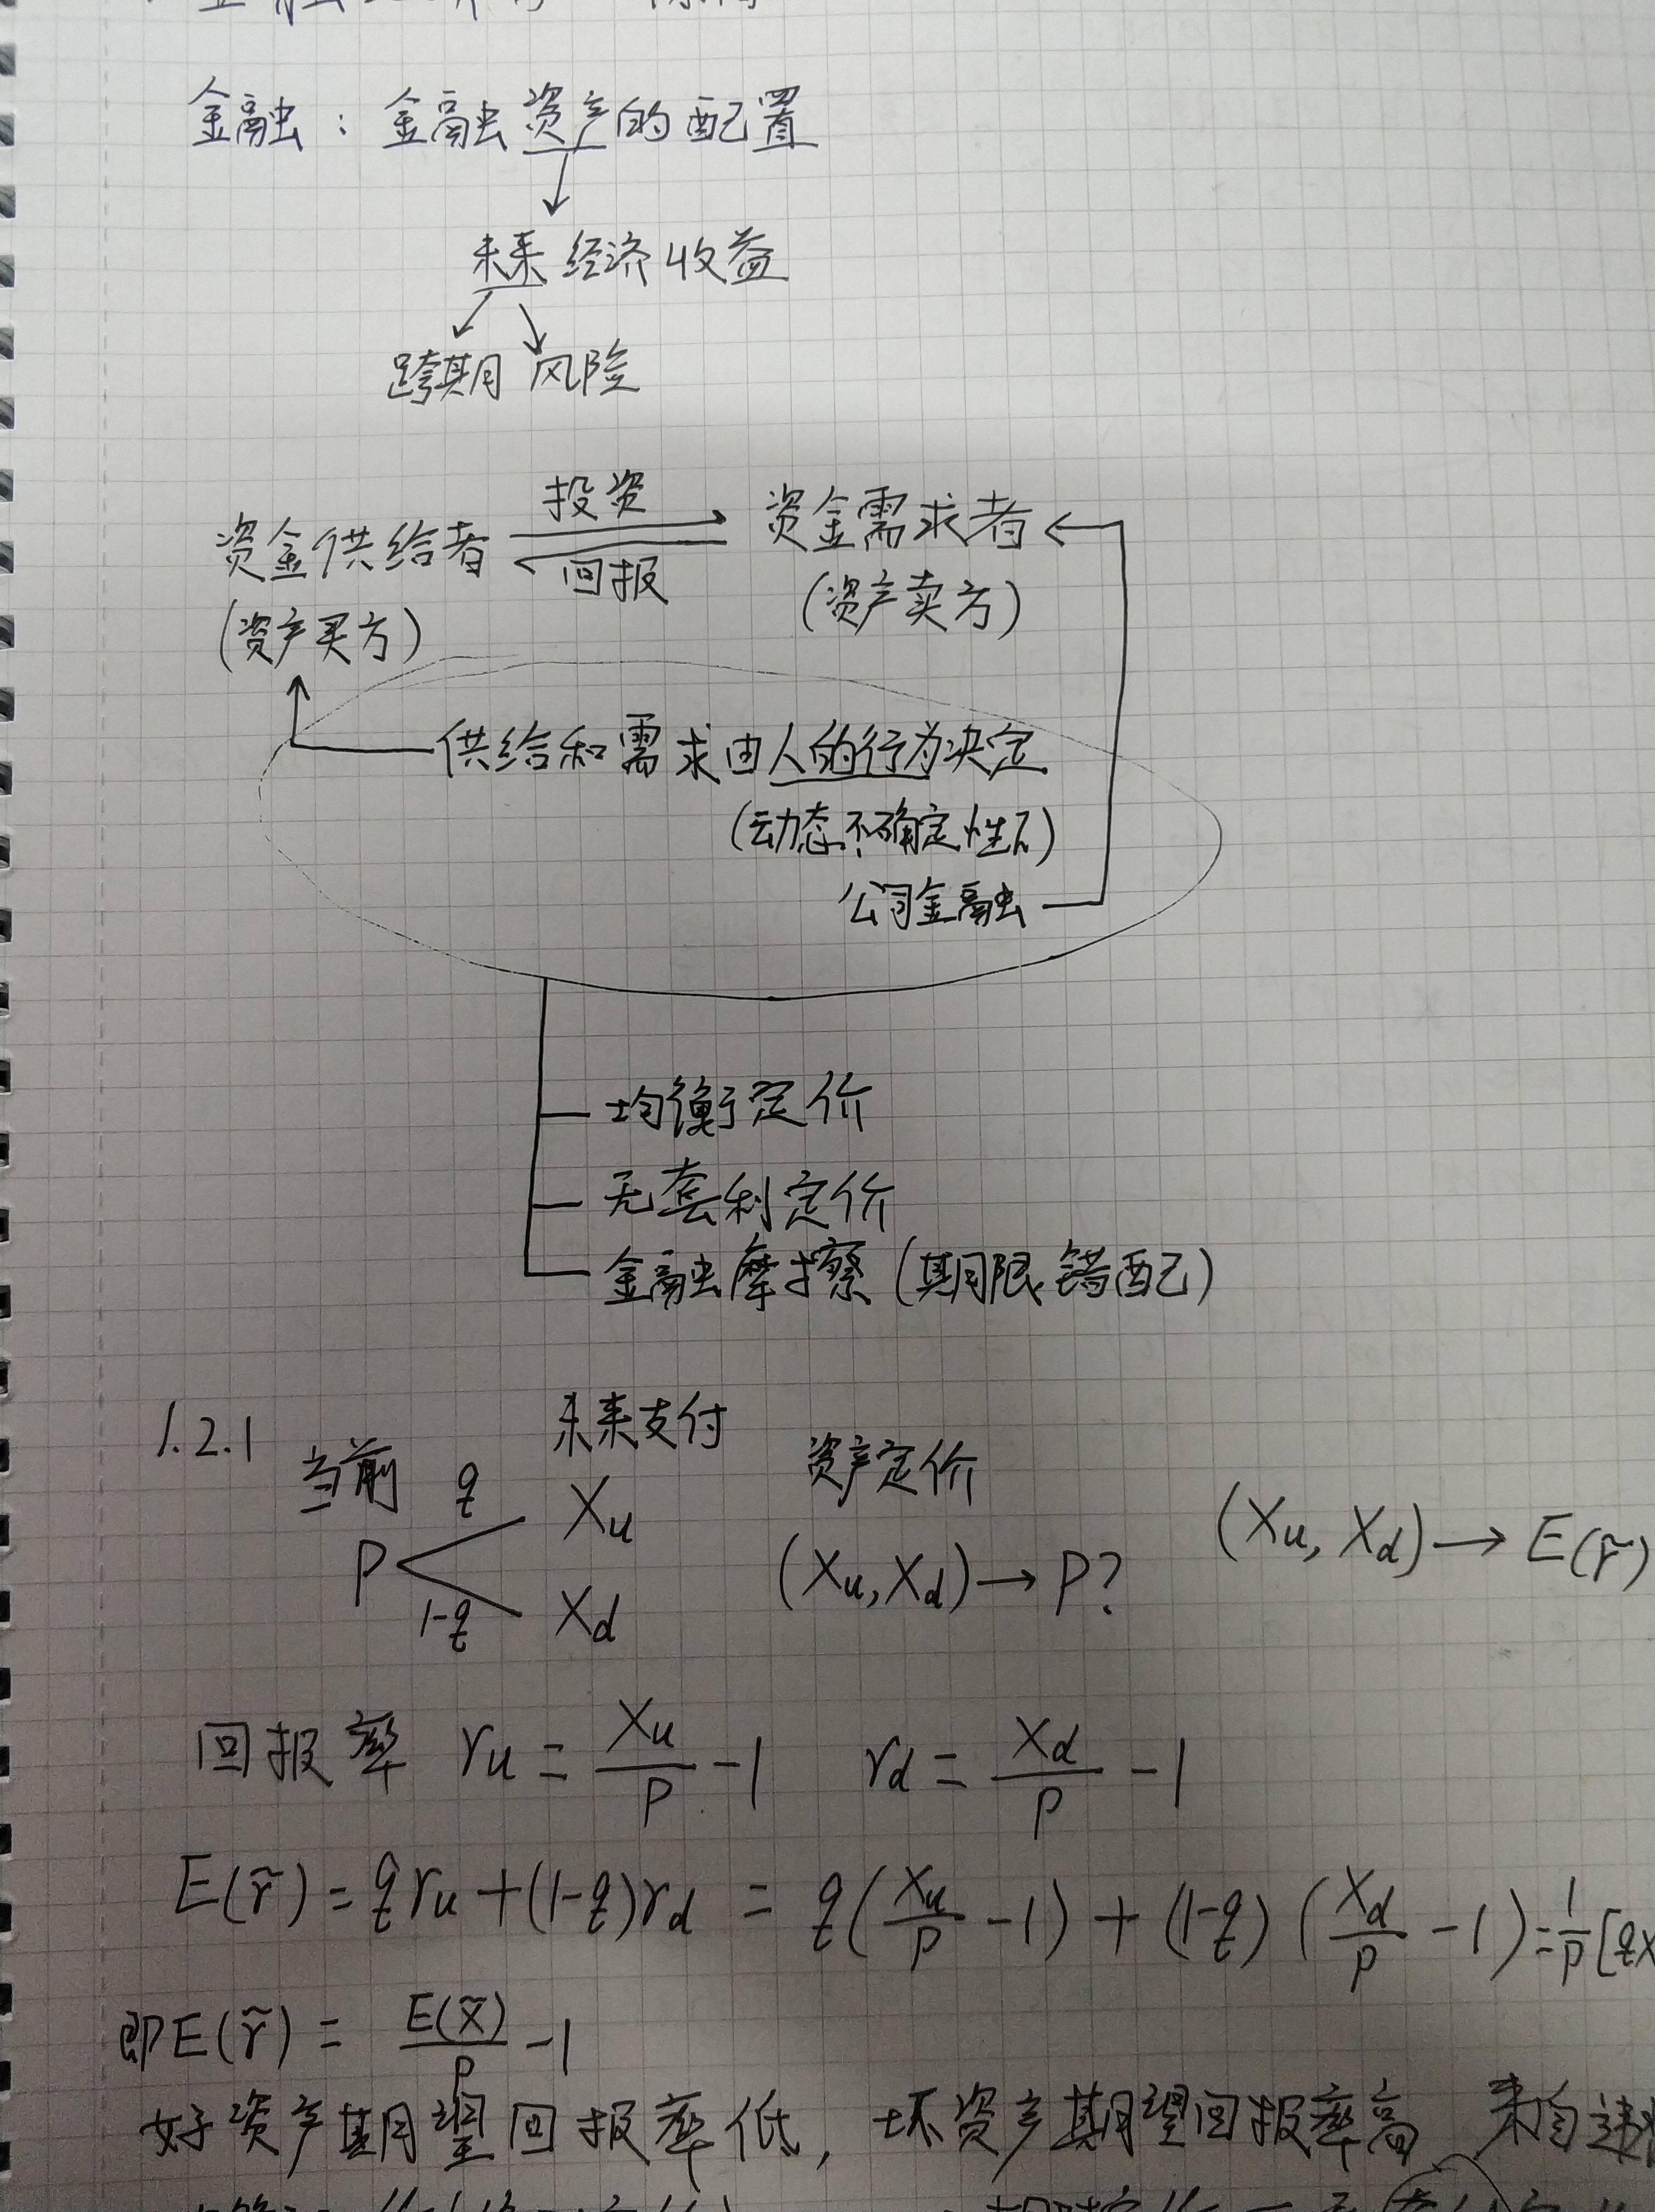 金融：金融资产的配置
未来经济收益
跨期 风险
投资
资金供给者 资金需求者
回报
(资产买方) (资产卖方)
供给和需求由人的行为决定
(动态不确定性下)
公司金融
均衡定价
无套利定价
金融摩擦(期限错配)
1.2.1 当前 未来支付 资产定价
q Xu
P (Xu,Xd)→P? (Xu,Xd)→E(r̃)
1-q Xd
回报率 ru = Xu/P -1 rd = Xd/P -1
E(r̃)=qru+(1-q)rd = q(Xu/P -1)+(1-q)(Xd/P -1)=1/P[qX
即E(r̃)= E(x̃)/P -1
好资产期望回报率低，坏资产期望回报率高 来自